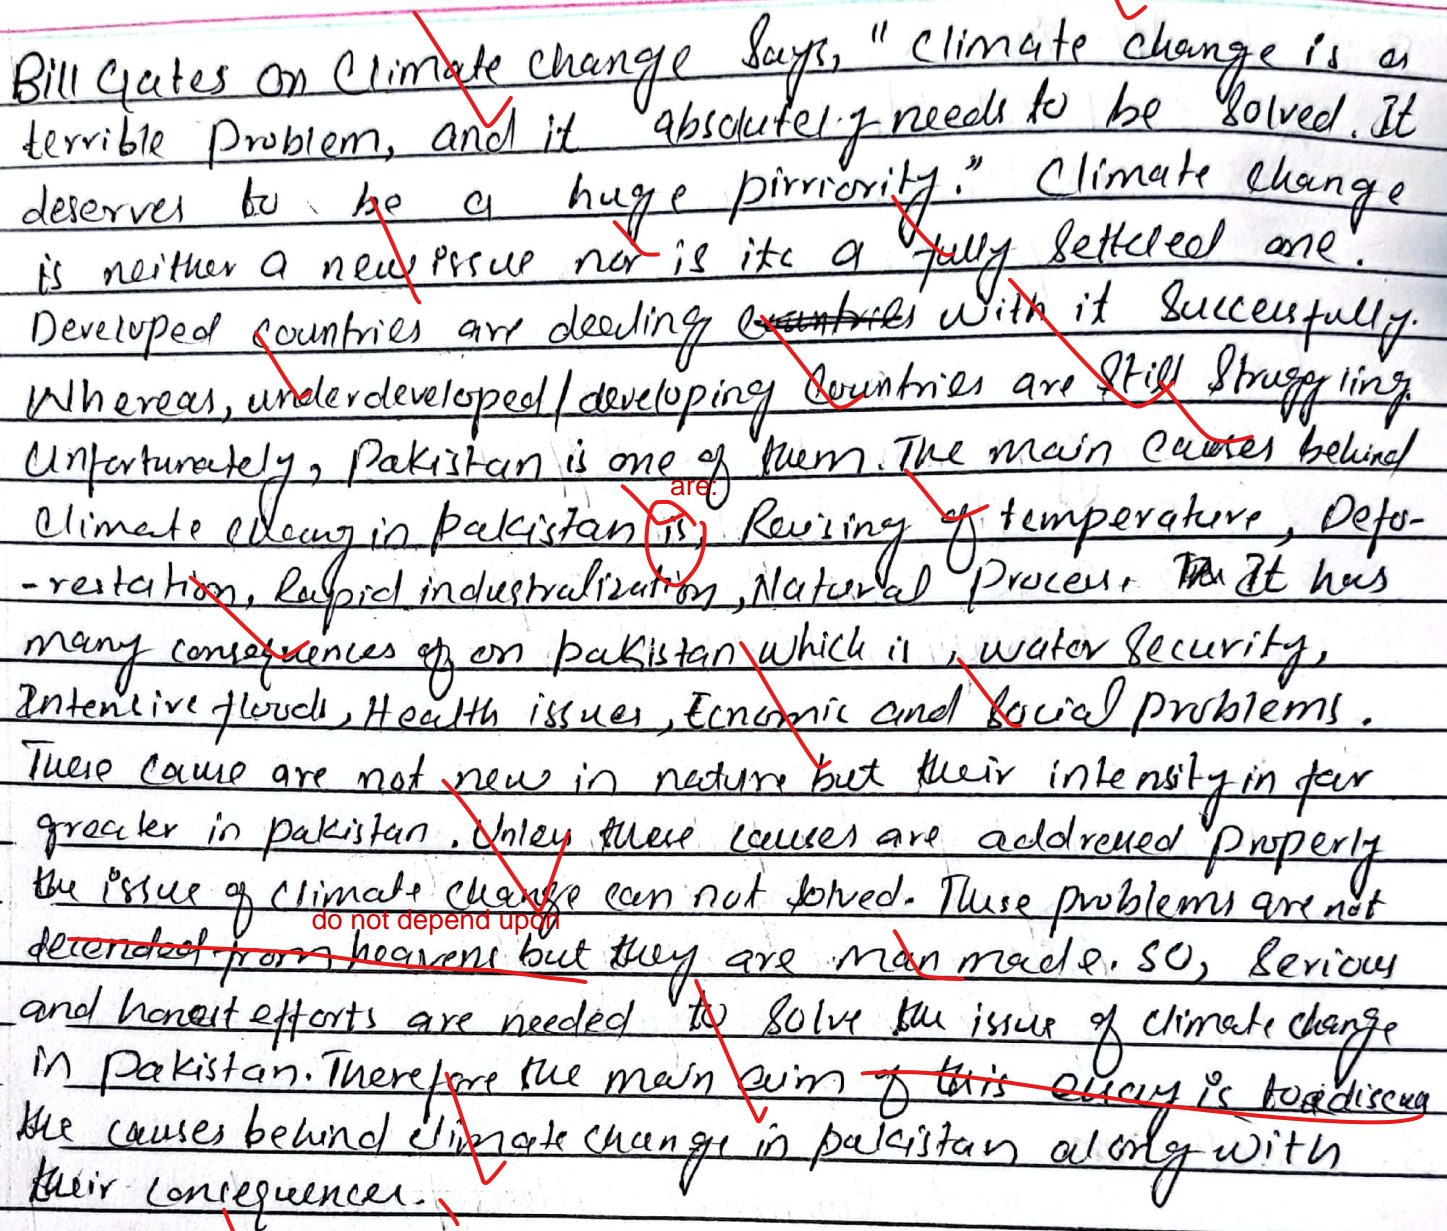 Bill Gates on Climate change Says, "Climate change is a
terrible Problem, and it absolutely needs to be Solved. It
deserves to be a huge pirriority." Climate change
is neither a new issue nor is its a fully settled one.
Developed countries are deeling countries with it Successfully.
Whereas, underdeveloped/developing Countries are Still Struggling.
Unfortunately, Pakistan is one of them. The main causes behind
are:
Climate chang in Pakistan is, Raising of temperature, Defo-
-restation, Rapid industralization, Natural Process. It has
many consequences of on Pakistan which is, water Security,
Intensive floods, Health issues, Ecnomic and Social Problems.
These cause are not new in nature but their intensity in far
greater in Pakistan. Unless these causes are addressed Properly
the issue of climate change can not solved. These problems are not
do not depend upon
decended from heavens but they are man made. SO, Serious
and honest efforts are needed to Solve the issue of climate change
in Pakistan. Therefore the main aim of this essay is to discuss
the causes behind climate change in Pakistan along with
their consequences.